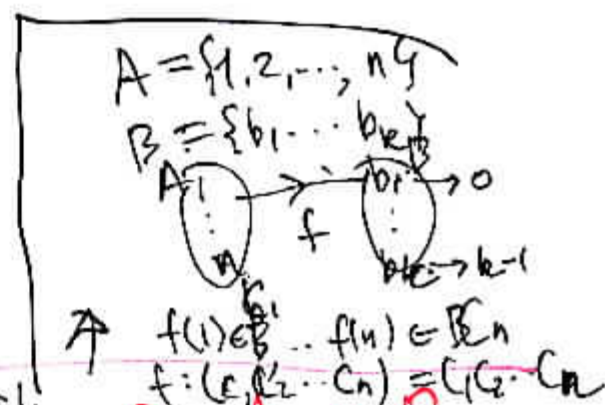 A = {1, 2, ..., n}
B = {b₁ ... bₖ}
A 1 b₁ → 0
⋮ f ⋮
n bₖ → k-1
f(1) ∈ B ... f(n) ∈ B Cn
f: (C₁ C₂ ... Cn) = C₁C₂ ... Cn